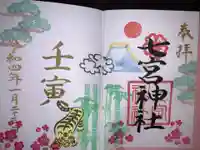 奉拝
七宮神社
壬寅
令和四年一月